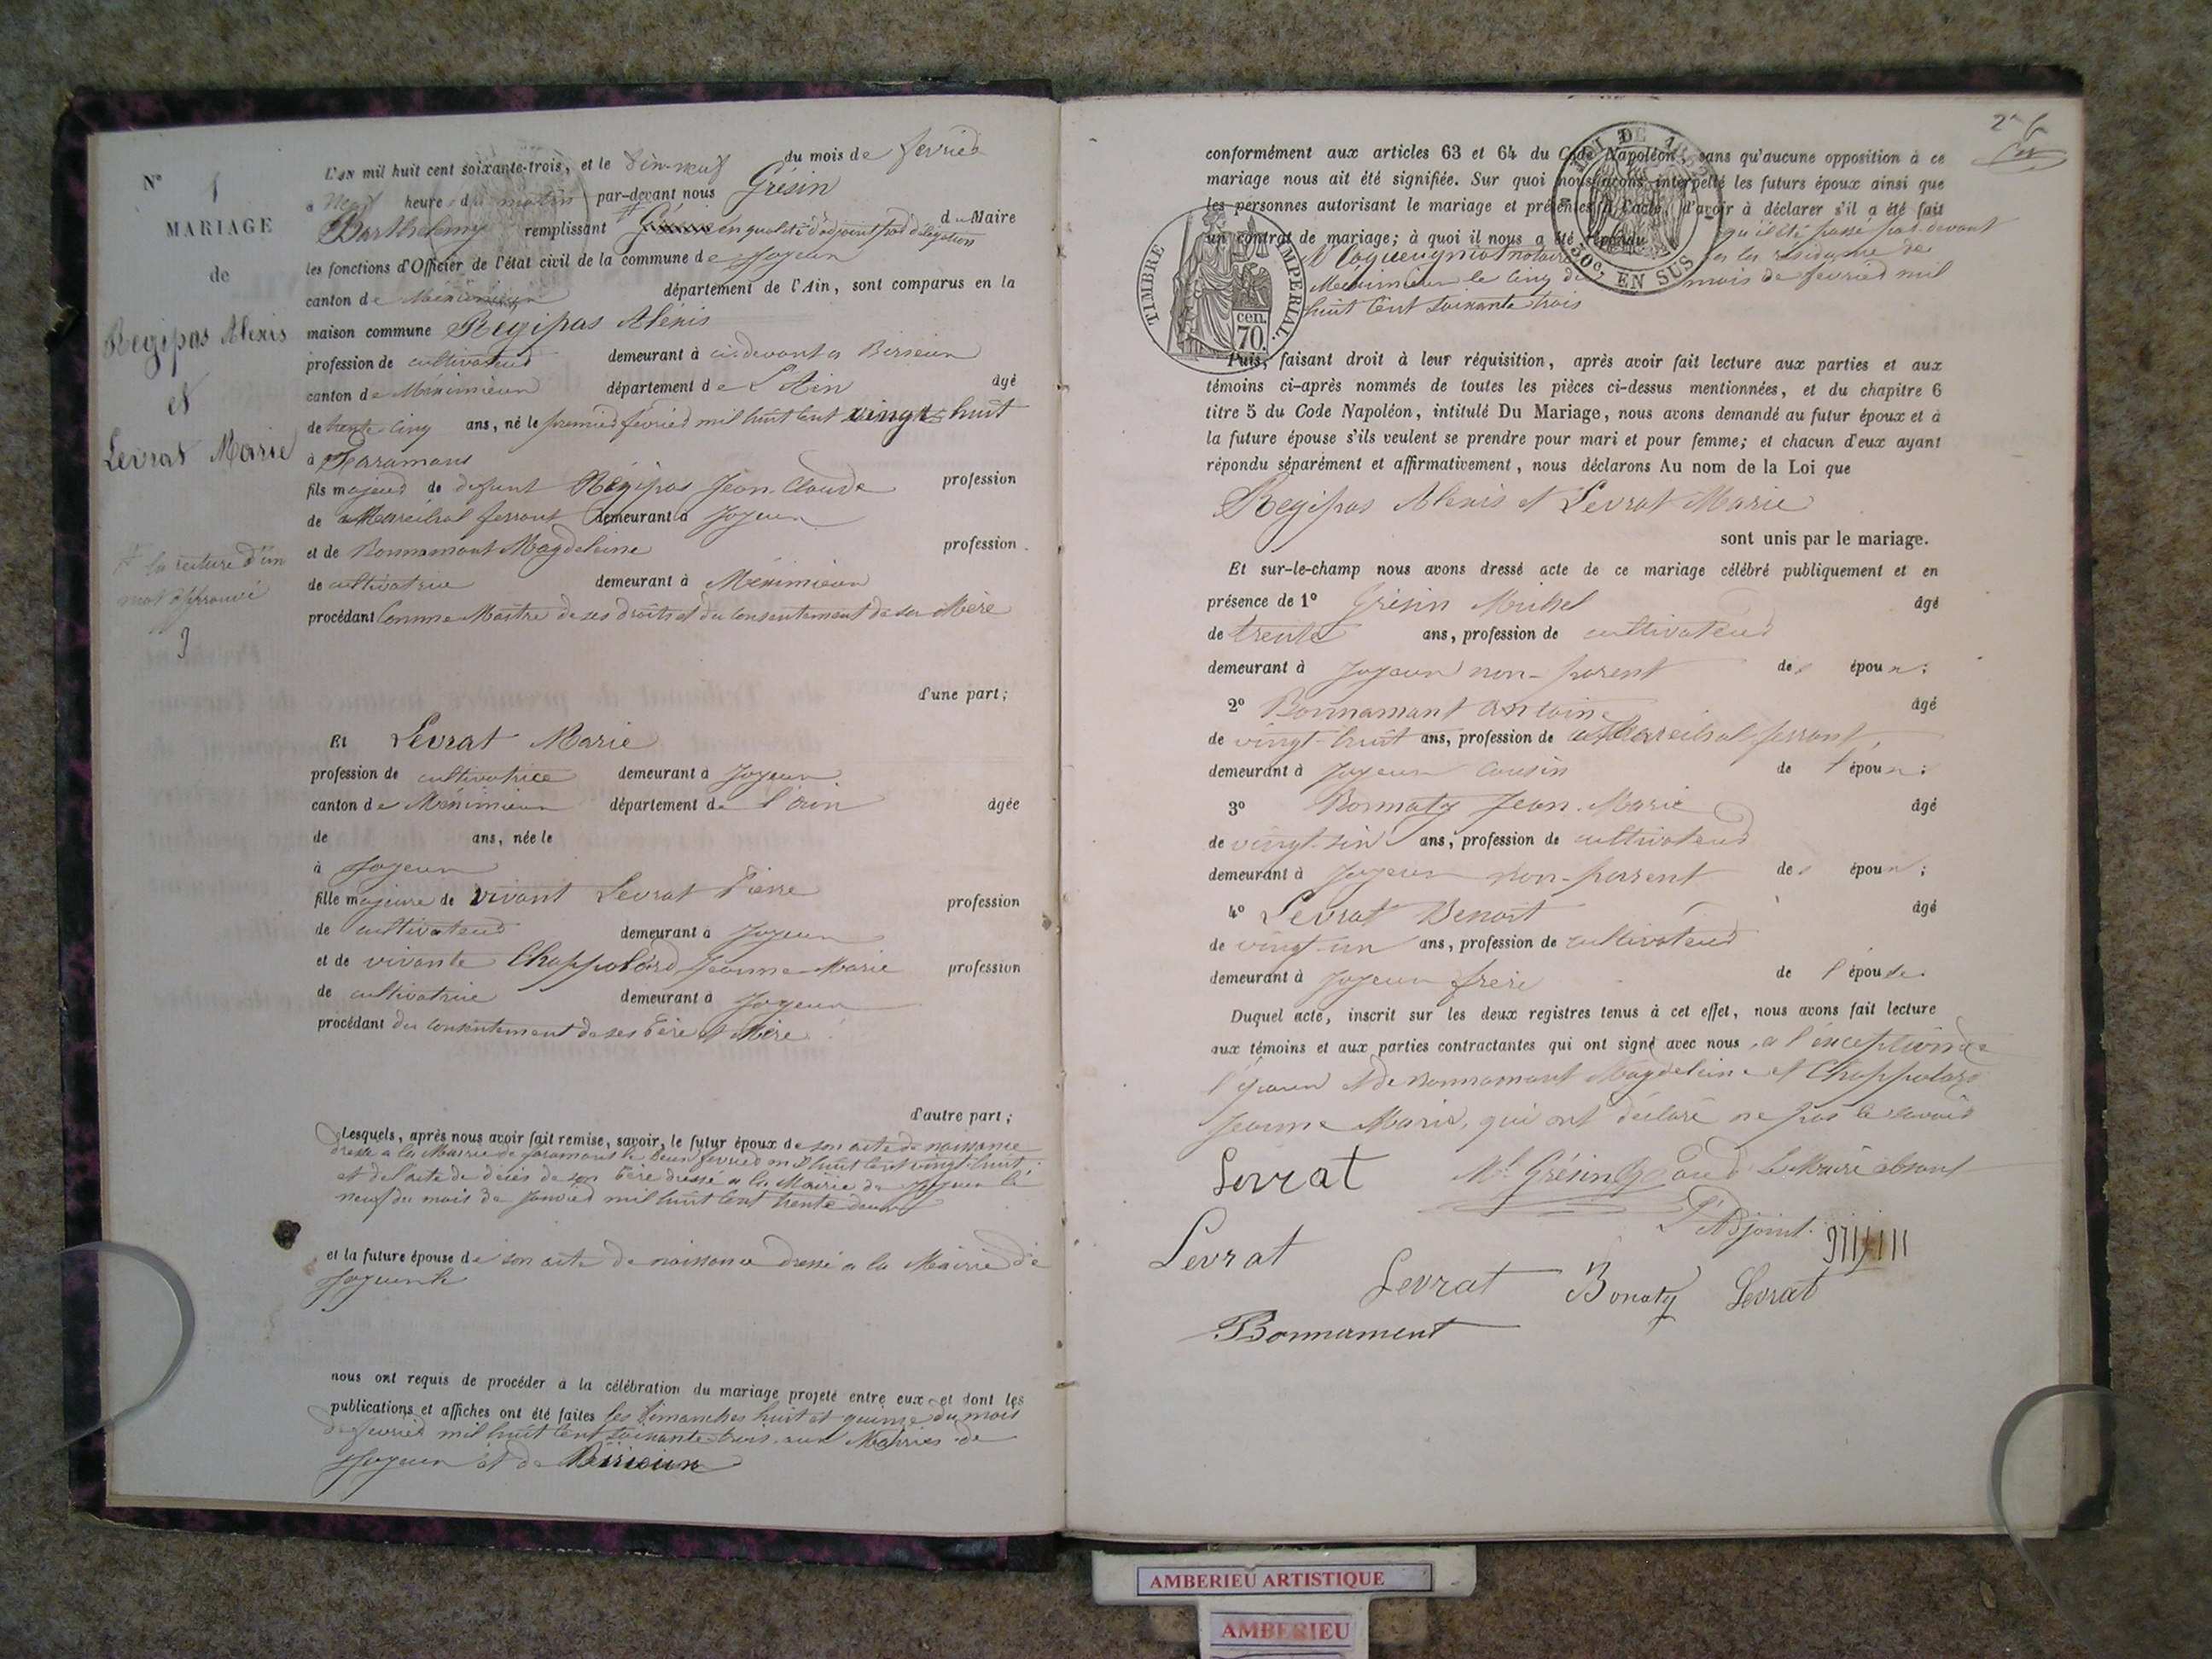 N° 1
MARIAGE
de
Regipas Alexis
et
Levrat Marie
la rature d'un
mot approuvé
L'an mil huit cent soixante-trois, et le dix-neuf du mois de février
a neuf heures du matin par-devant nous Grésin
Barthelemy remplissant en qualité d'adjoint par délégation du Maire
les fonctions d'Officier de l'état civil de la commune de Joyeux
canton de Méximieux département de l'Ain, sont comparus en la
maison commune Regipas Alexis
profession de cultivateur demeurant à ci-devant a Birieux
canton de Méximieux département de L'Ain âgé
de trente cinq ans, né le premier février mil huit cent vingt huit
à Faramans
fils majeur de défunt Régipas Jean Claude profession
de Maréchal ferrant demeurant à Joyeux
et de Bonnamant Magdeleine profession
de cultivatrice demeurant à Méximieux
procédant Comme Maître de ses droits et du consentement de sa Mère
d'une part;
Et Levrat Marie
profession de cultivatrice demeurant à Joyeux
canton de Méximieux département de l'ain âgée
de ans, née le
à Joyeux
fille majeure de vivant Levrat Pierre profession
de cultivateur demeurant à Joyeux
et de vivante Chappolard Jeanne Marie profession
de cultivatrice demeurant à Joyeux
procédant du consentement de ses Père et Mère
d'autre part;
Lesquels, après nous avoir fait remise, savoir, le futur époux de son acte de naissance
dressé a la Mairie de faramans le deux février mil huit cent vingt huit
et de l'acte de décès de son Père dressé a la Mairie de Joyeux le
neuf du mois de janvier mil huit cent trente deux
et la future épouse de son acte de naissance dressé a la Mairie de
Joyeux le
nous ont requis de procéder à la célébration du mariage projeté entre eux et dont les
publications et affiches ont été faites les dimanches huit et quinze du mois
de février mil huit cent soixante trois aux Mairies de
Joyeux et de Birieux
conformément aux articles 63 et 64 du Code Napoléon, sans qu'aucune opposition à ce
mariage nous ait été signifiée. Sur quoi nous avons interpellé les futurs époux ainsi que
les personnes autorisant le mariage et présentes à l'acte, d'avoir à déclarer s'il a été fait
un contrat de mariage; à quoi il nous a été répondu qu'il été passé par devant
notaire a la résidence de
Méximieux le cinq du mois de février mil
huit cent soixante trois
TIMBRE IMPERIAL.
cen.
70.
50c. EN SUS
Puis, faisant droit à leur réquisition, après avoir fait lecture aux parties et aux
témoins ci-après nommés de toutes les pièces ci-dessus mentionnées, et du chapitre 6
titre 5 du Code Napoléon, intitulé Du Mariage, nous avons demandé au futur époux et à
la future épouse s'ils veulent se prendre pour mari et pour femme; et chacun d'eux ayant
répondu séparément et affirmativement, nous déclarons Au nom de la Loi que
Regipas Alexis et Levrat Marie
sont unis par le mariage.
Et sur-le-champ nous avons dressé acte de ce mariage célébré publiquement et en
présence de 1° Grésin Michel âgé
de trente ans, profession de cultivateur
demeurant à Joyeux non-parent des époux;
2° Bonnamant Antoine âgé
de vingt-huit ans, profession de Maréchal ferrant,
demeurant à Joyeux cousin de l'époux;
3° Bonnaty Jean-Marie âgé
de vingt-six ans, profession de cultivateur
demeurant à Joyeux non-parent des époux;
4° Levrat Benoît âgé
de vingt-un ans, profession de cultivateur
demeurant à Joyeux frère de l'épouse.
Duquel acte, inscrit sur les deux registres tenus à cet effet, nous avons fait lecture
aux témoins et aux parties contractantes qui ont signé avec nous, a l'exception de
l'époux et de Bonnamant Magdeleine et Chappolard
Jeanne Marie, qui ont déclaré ne pas le savoir
Levrat Ml Grésin Pour le Maire absent
L'Adjoint.
Levrat
Levrat Bonaty Levrat
Bonnament
AMBERIEU ARTISTIQUE
AMBERIEU